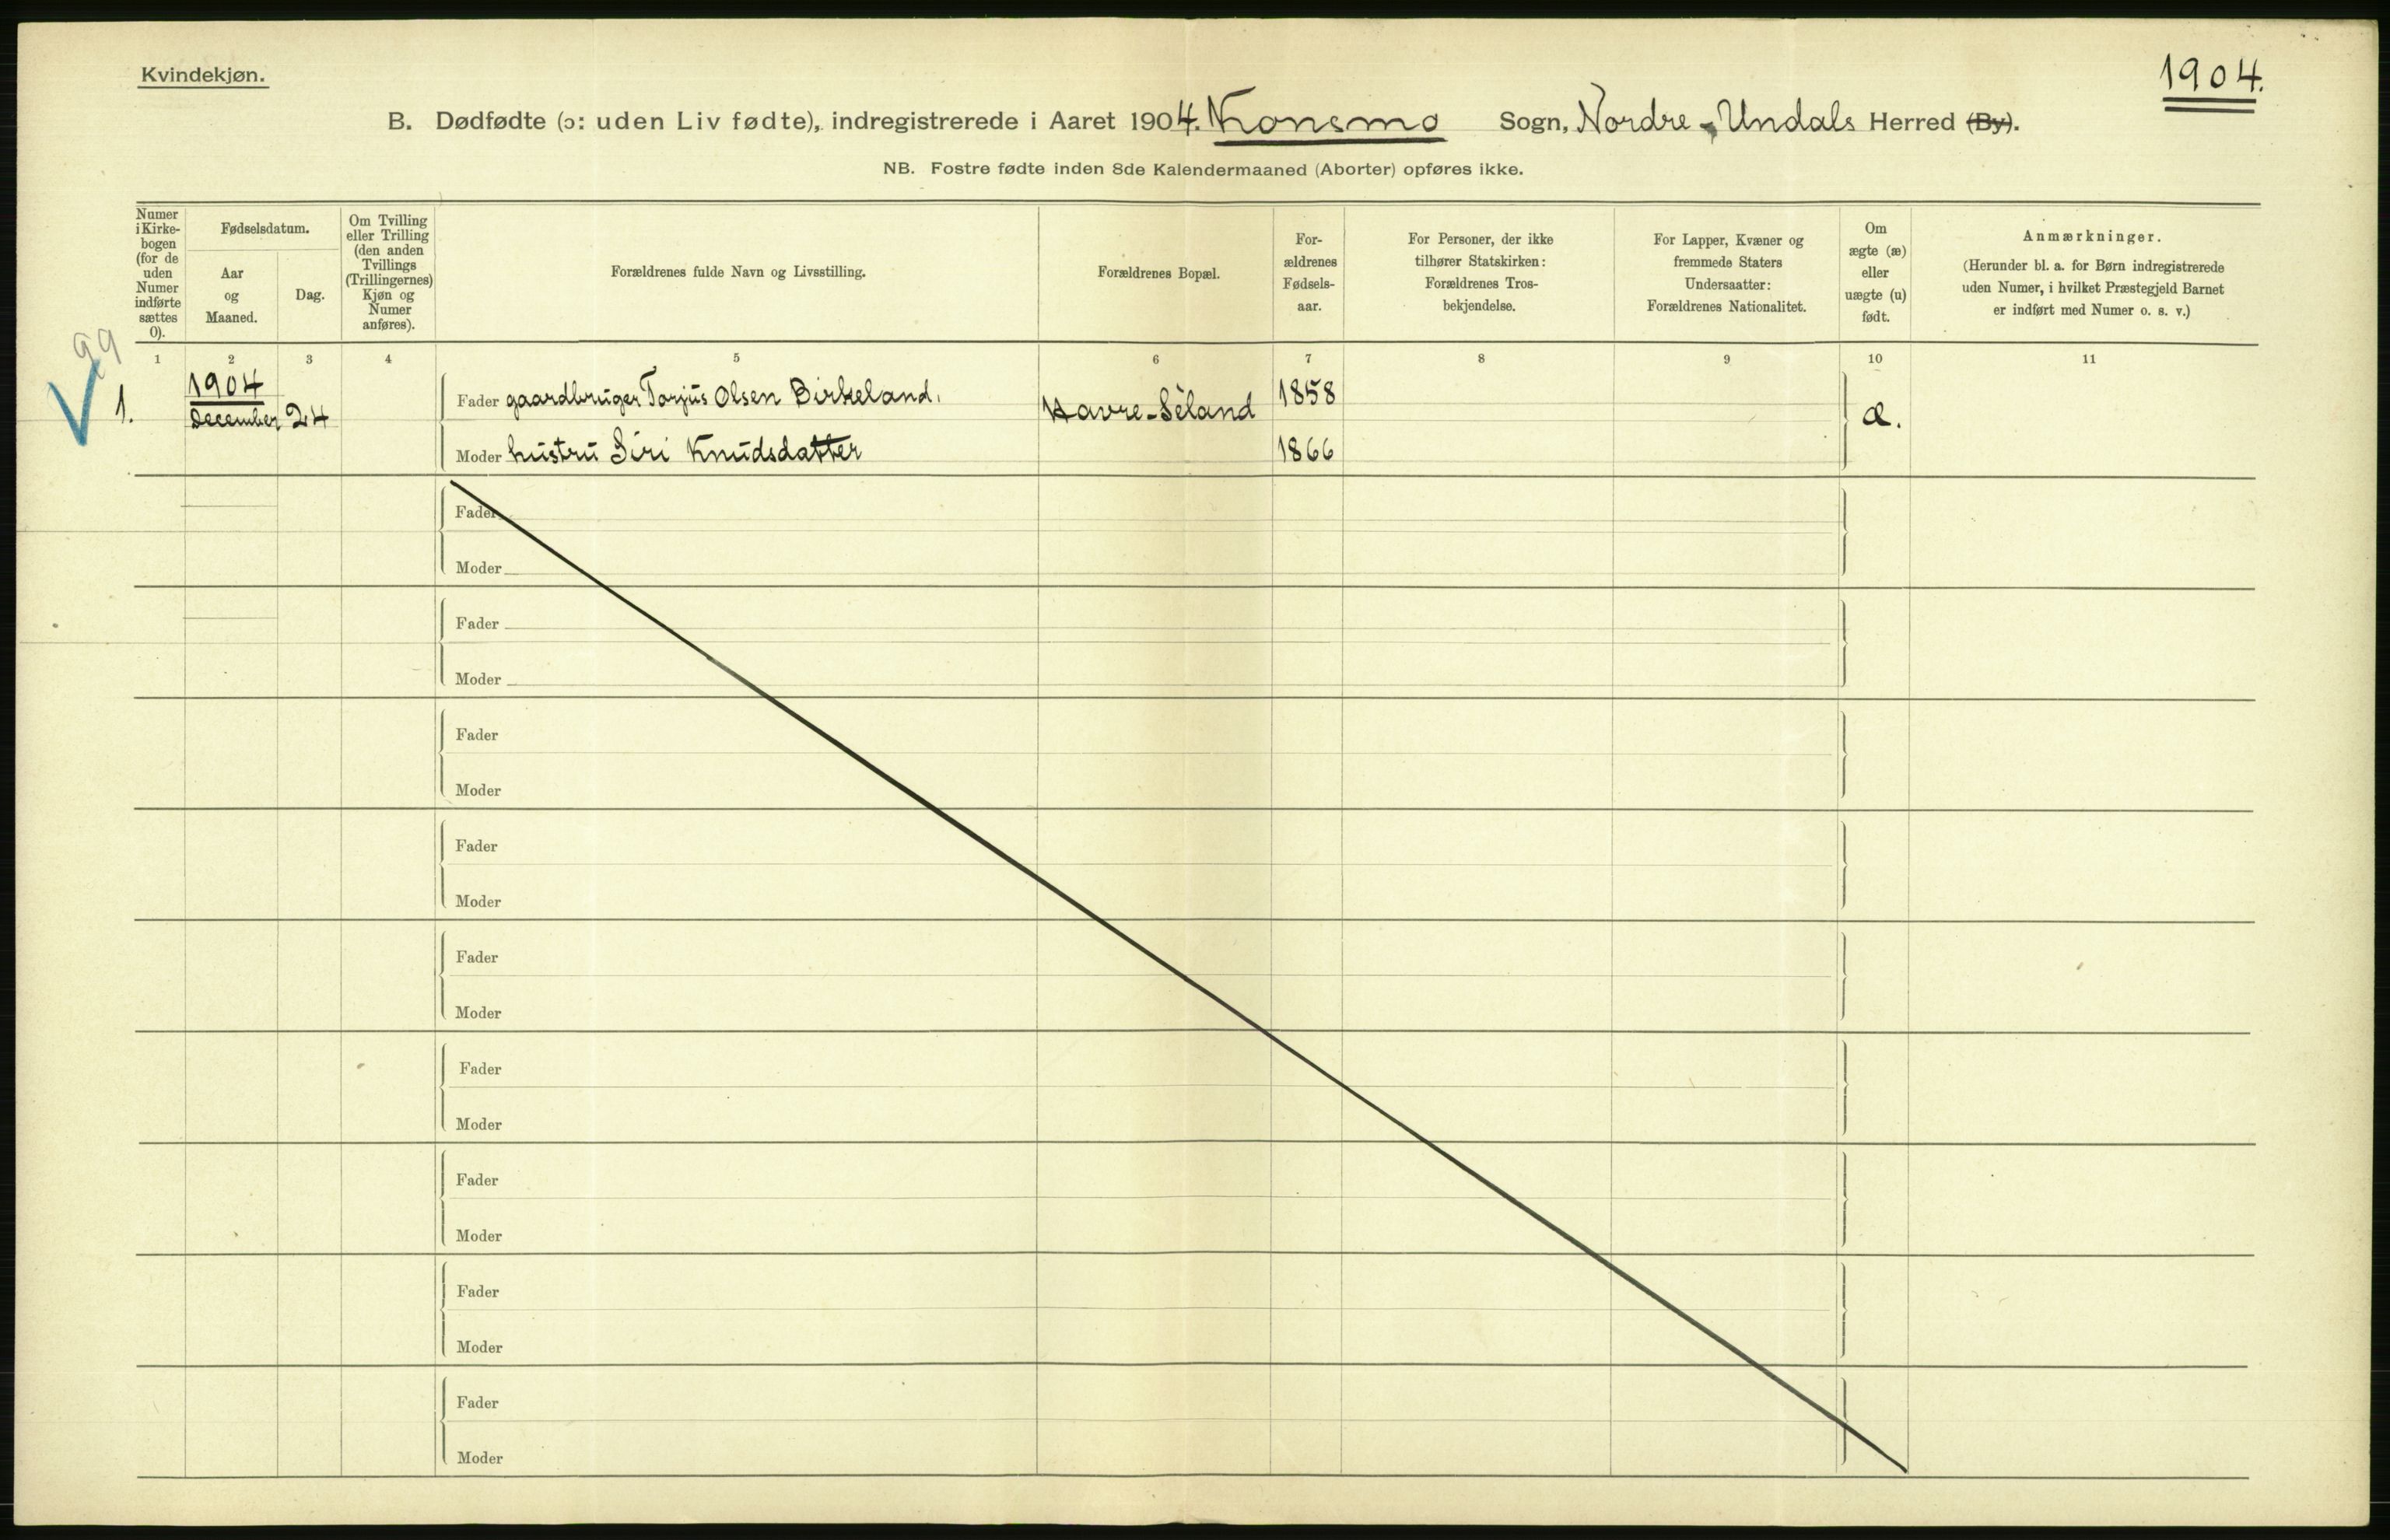 Kvindekjøn.
1904.
B. Dødfødte (ɔ: uden Liv fødte), indregistrerede i Aaret 1904. Konsmo Sogn, Nordre-Undals Herred (By).
NB. Fostre fødte inden 8de Kalendermaaned (Aborter) opføres ikke.
Numer
i Kirke-
bogen
(for de
uden
Numer
indførte
sættes
0).
Fødselsdatum.
Aar
og
Maaned.
Dag.
Om Tvilling
eller Trilling
(den anden
Tvillings
(Trillingernes)
Kjøn og
Numer
anføres).
Forældrenes fulde Navn og Livsstilling.
Forældrenes Bopæl.
For-
ældrenes
Fødsels-
aar.
For Personer, der ikke
tilhører Statskirken:
Forældrenes Tros-
bekjendelse.
For Lapper, Kvæner og
fremmede Staters
Undersaatter:
Forældrenes Nationalitet.
Om
ægte (æ)
eller
uægte (u)
født.
Anmærkninger.
(Herunder bl. a. for Børn indregistrerede
uden Numer, i hvilket Præstegjeld Barnet
er indført med Numer o. s. v.)
99
1 2 3 4 5 6 7 8 9 10 11
1904
1. December 24 Fader gaardbruger Torjus Olsen Birkeland. Havre-Séland 1858 æ.
Moder hustru Siri Knudsdatter 1866
Fader
Moder
Fader
Moder
Fader
Moder
Fader
Moder
Fader
Moder
Fader
Moder
Fader
Moder
Fader
Moder
Fader
Moder